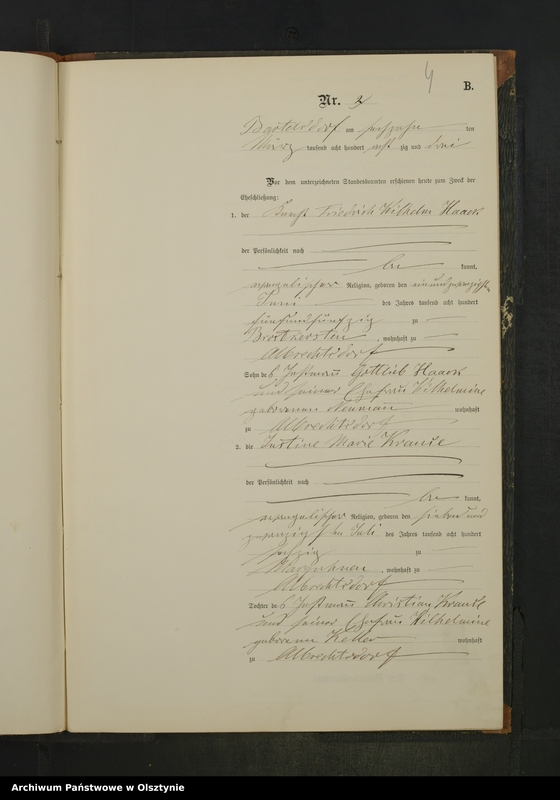 4
B.
Nr. 2
Bartelsdorf am sechszehn ten
März tausend acht hundert acht zig und drei
Vor dem unterzeichneten Standesbeamten erschienen heute zum Zweck der
Eheschließung:
1. der Knecht Friedrich Wilhelm Haack
der Persönlichkeit nach
be kannt,
evangelischer Religion, geboren den einundzwanzigsten
Juni des Jahres tausend acht hundert
fünfundfünfzig zu
, wohnhaft zu
Albrechtsdorf
Sohn des Instmann Gottlieb Haack
und seiner Ehefrau Wilhelmine
geborenen Neumann wohnhaft
zu Albrechtsdorf
2. die Justine Marie Krause
der Persönlichkeit nach
be kannt,
evangelischer Religion, geboren den sieben und
zwanzigsten Juli des Jahres tausend acht hundert
sechzig zu
, wohnhaft zu
Albrechtsdorf
Tochter des Instmann Christian Krause
und seiner Ehefrau Wilhelmine
geborenen Keller wohnhaft
zu Albrechtsdorf
Archiwum Państwowe w Olsztynie